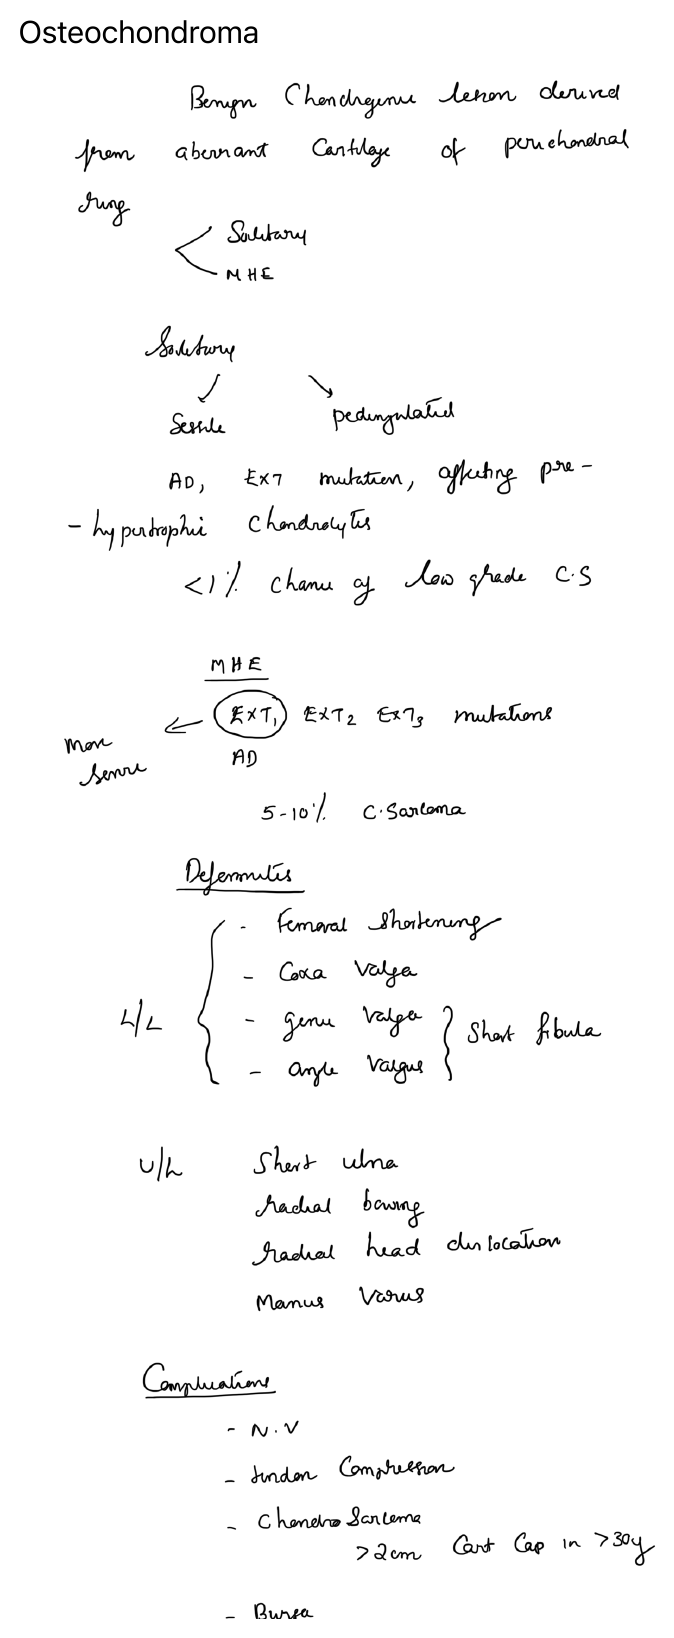 Osteochondroma
Benign Chondrogenic lesion derived
from aberrant Cartilage of perichondral
ring
Solitary
MHE
Solitary
Sessile pedungulated
AD, EXT mutation, affecting pre-
- hypertrophic chondrolytes
<1% chance of low grade C.S
MHE
EXT1 EXT2 EXT3 mutations
More
severe
AD
5-10% C.Sarcoma
Deformities
- Femoral shortening
- Coxa Valga
L/L
- genu Valga
short fibula
- angle Valgus
U/L Short ulna
radial bowing
radial head dislocation
Manus Varus
Complications
- N.V
- tendon Compression
- Chondro Sarcoma
>2cm Cart Cap in >30y
- Bursa